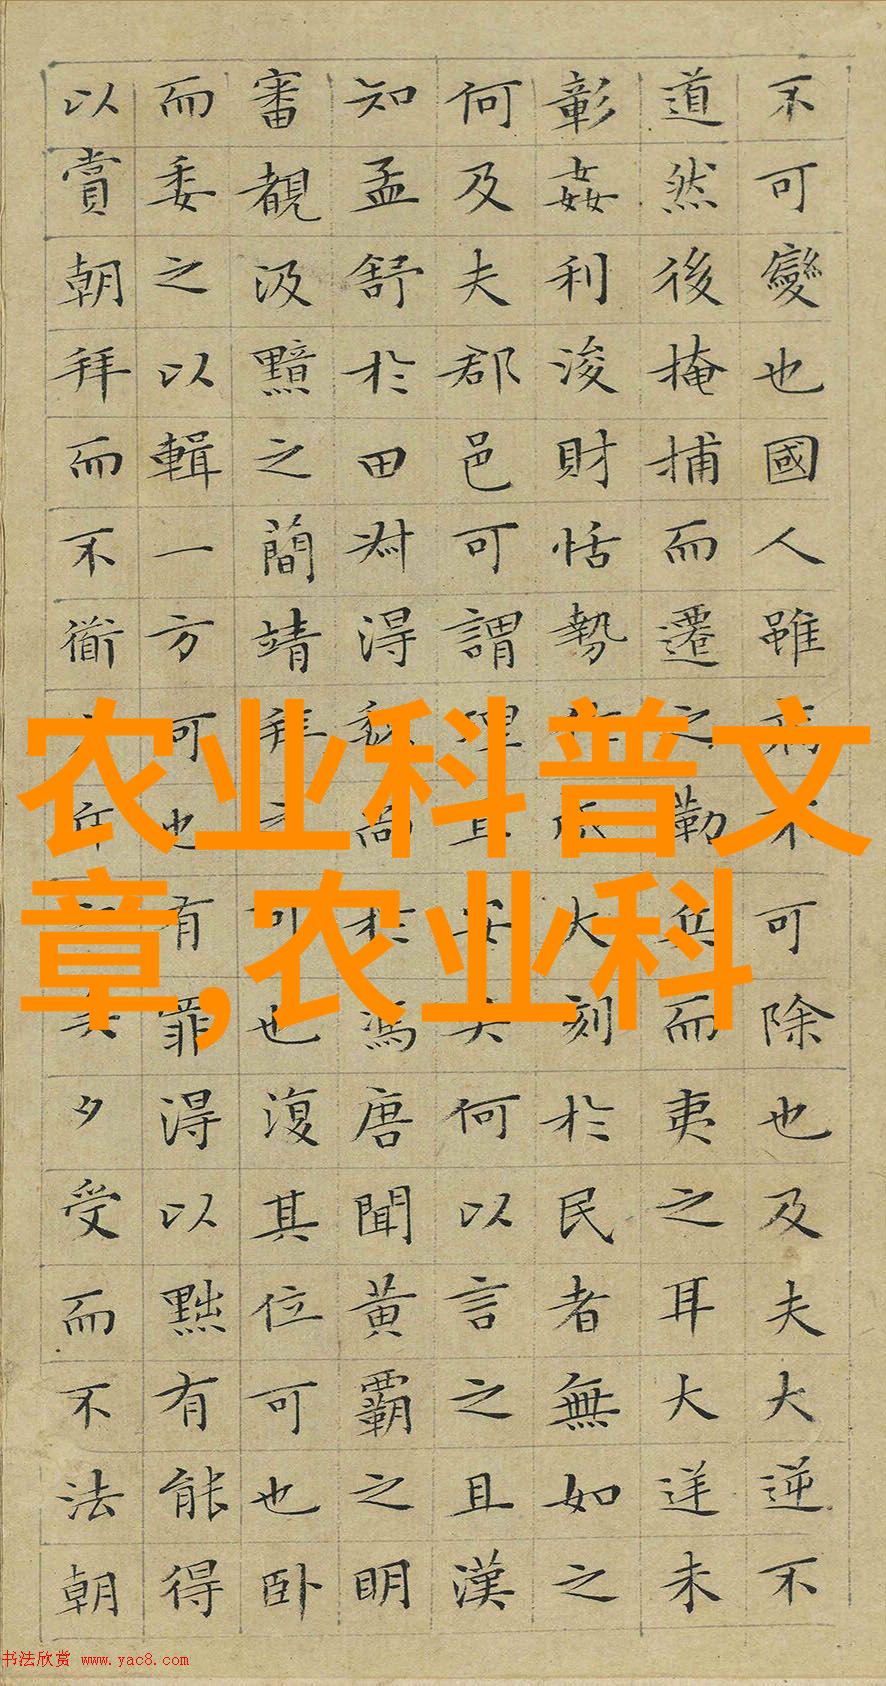 不可變也國人雖病不可除也及夫大逆不
道然後掩捕而遷之勒兵而夷之耳大逆未
彰姦利浚財恬勢大刻於民者無如之
何及夫郡邑可謂理且安矣何以言之且漢
知孟舒於田叔得魏尚於馮唐聞黃霸之明
審覩汲黯之簡靖拜之可也復其位可也卧
而委之以輯一方可也有罪得以黜有能得
以賞朝拜而不衜矣夕受而不法朝
农业科普文
章,农业科
书法欣赏 www.yac8.com